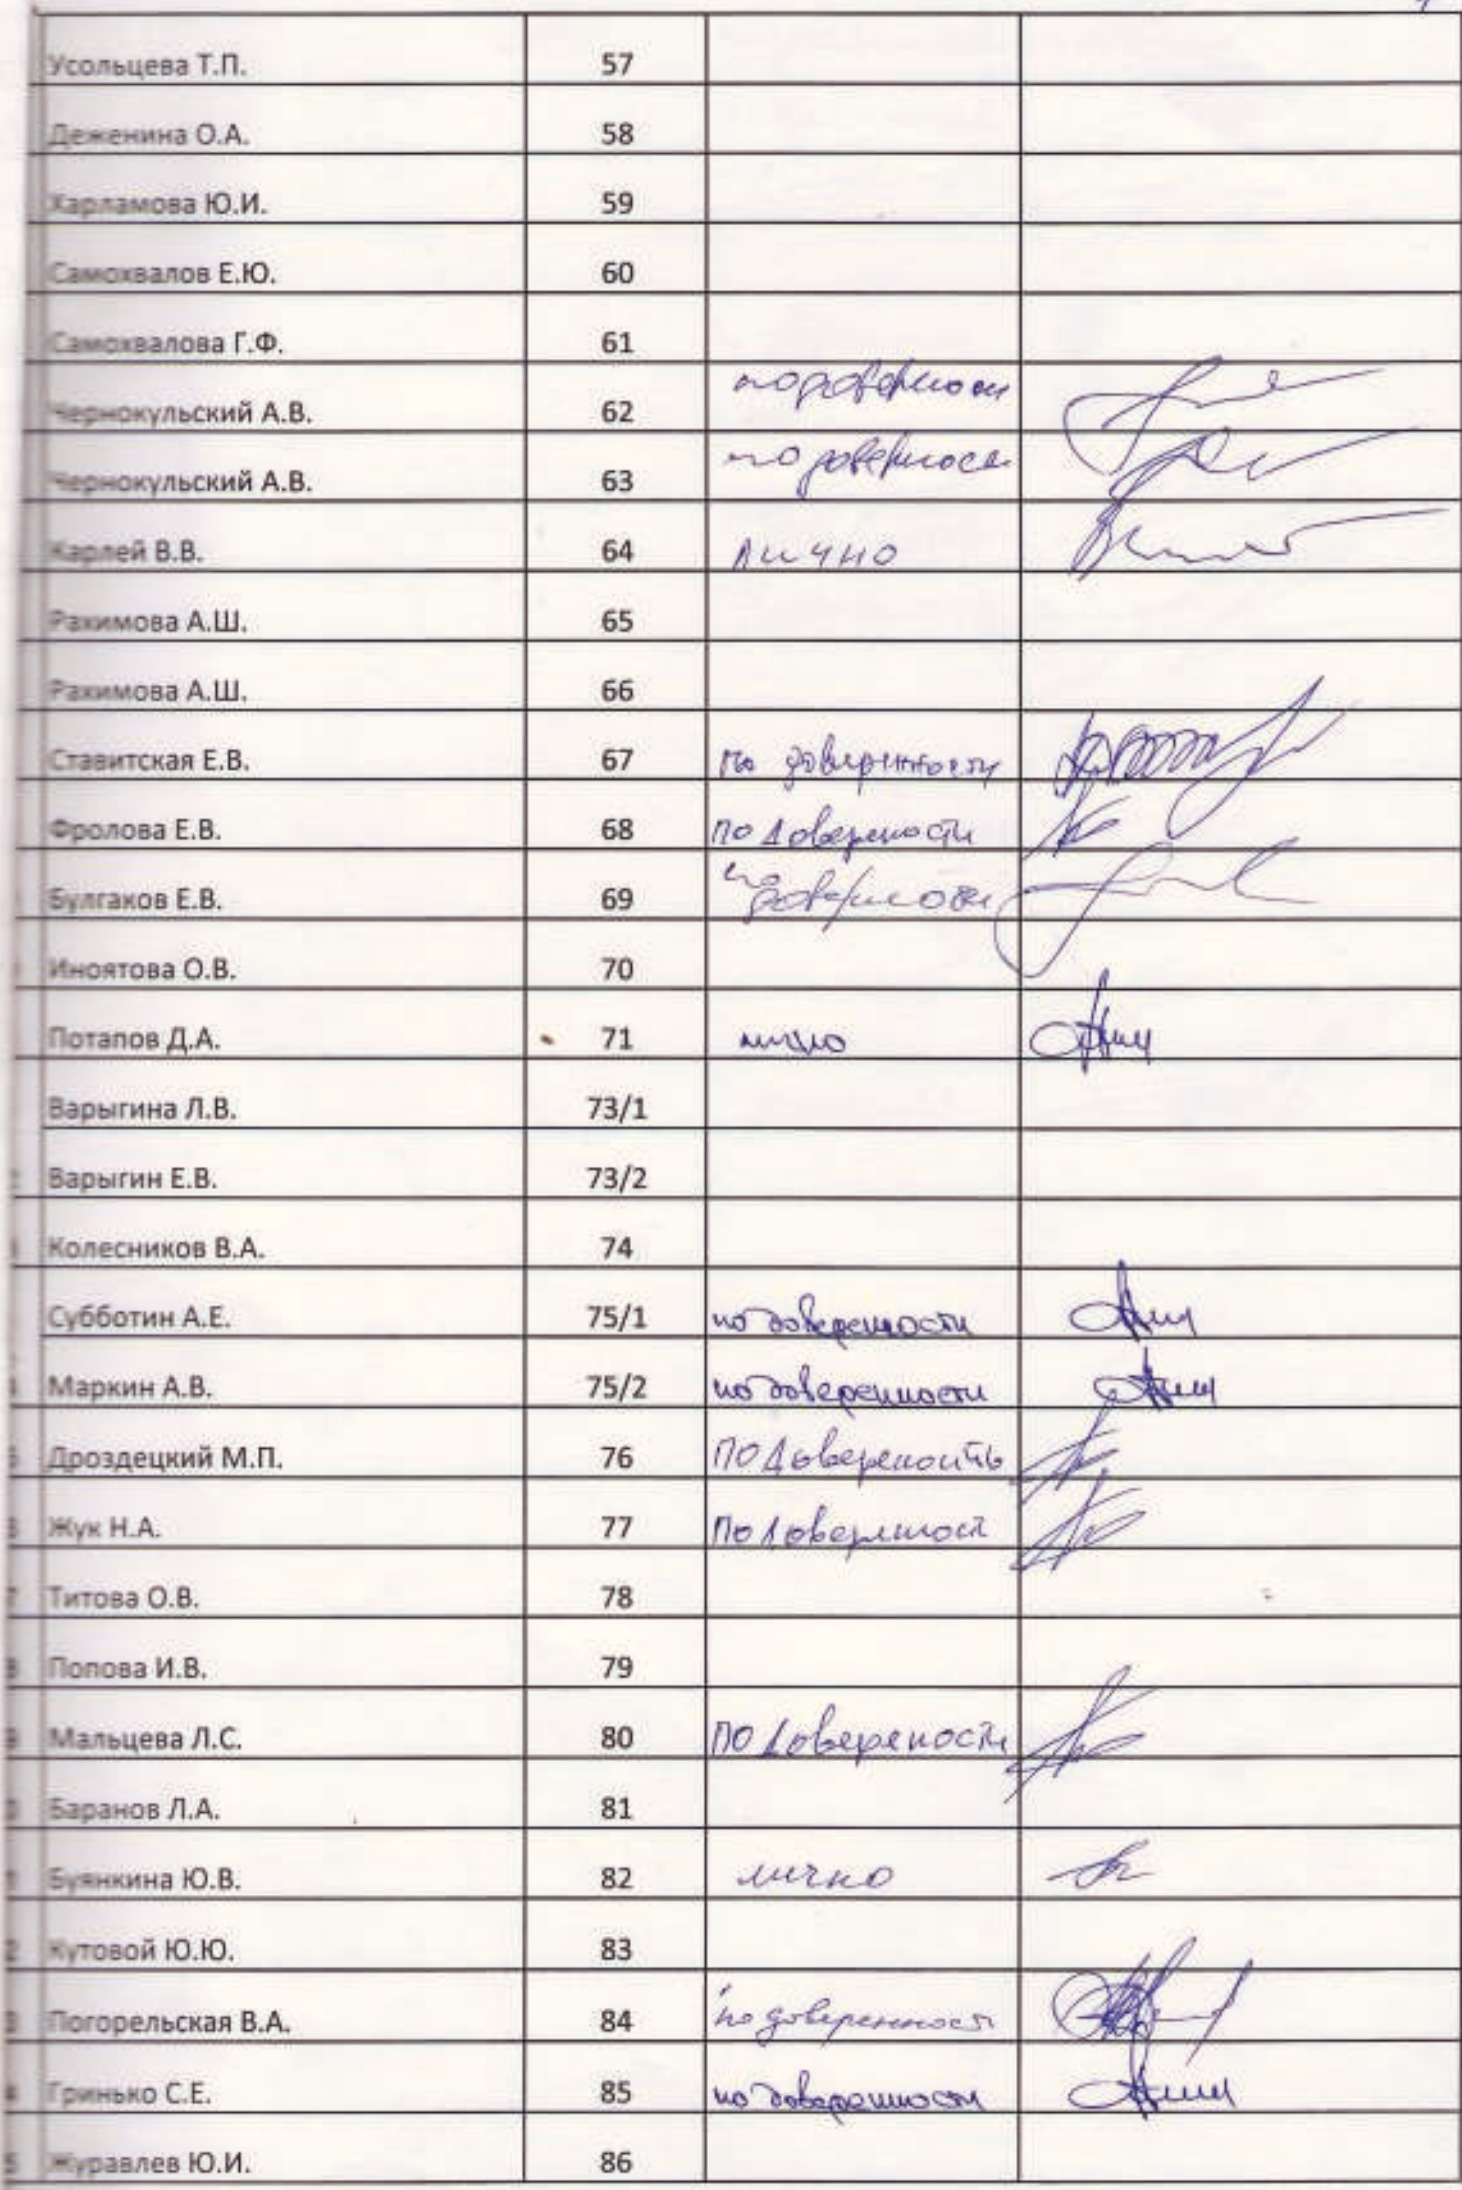 Усольцева Т.П. 57
Деженина О.А. 58
Харламова Ю.И. 59
Самохвалов Е.Ю. 60
Самохвалова Г.Ф. 61
Чернокульский А.В. 62 по доверености
Чернокульский А.В. 63 по доверености
Карлей В.В. 64 лично
Рахимова А.Ш. 65
Рахимова А.Ш. 66
Ставитская Е.В. 67 по доверенности
Фролова Е.В. 68 по доверености
Булгаков Е.В. 69 по доверености
Иноятова О.В. 70
Потапов Д.А. 71 лично
Варыгина Л.В. 73/1
Варыгин Е.В. 73/2
Колесников В.А. 74
Субботин А.Е. 75/1 по доверенности
Маркин А.В. 75/2 по доверенности
Дроздецкий М.П. 76 по довереность
Жук Н.А. 77 по довереност
Титова О.В. 78
Попова И.В. 79
Мальцева Л.С. 80 по доверености
Баранов Л.А. 81
Буянкина Ю.В. 82 лично
Кутовой Ю.Ю. 83
Погорельская В.А. 84 по доверенност
Гринько С.Е. 85 по доверенности
Журавлев Ю.И. 86